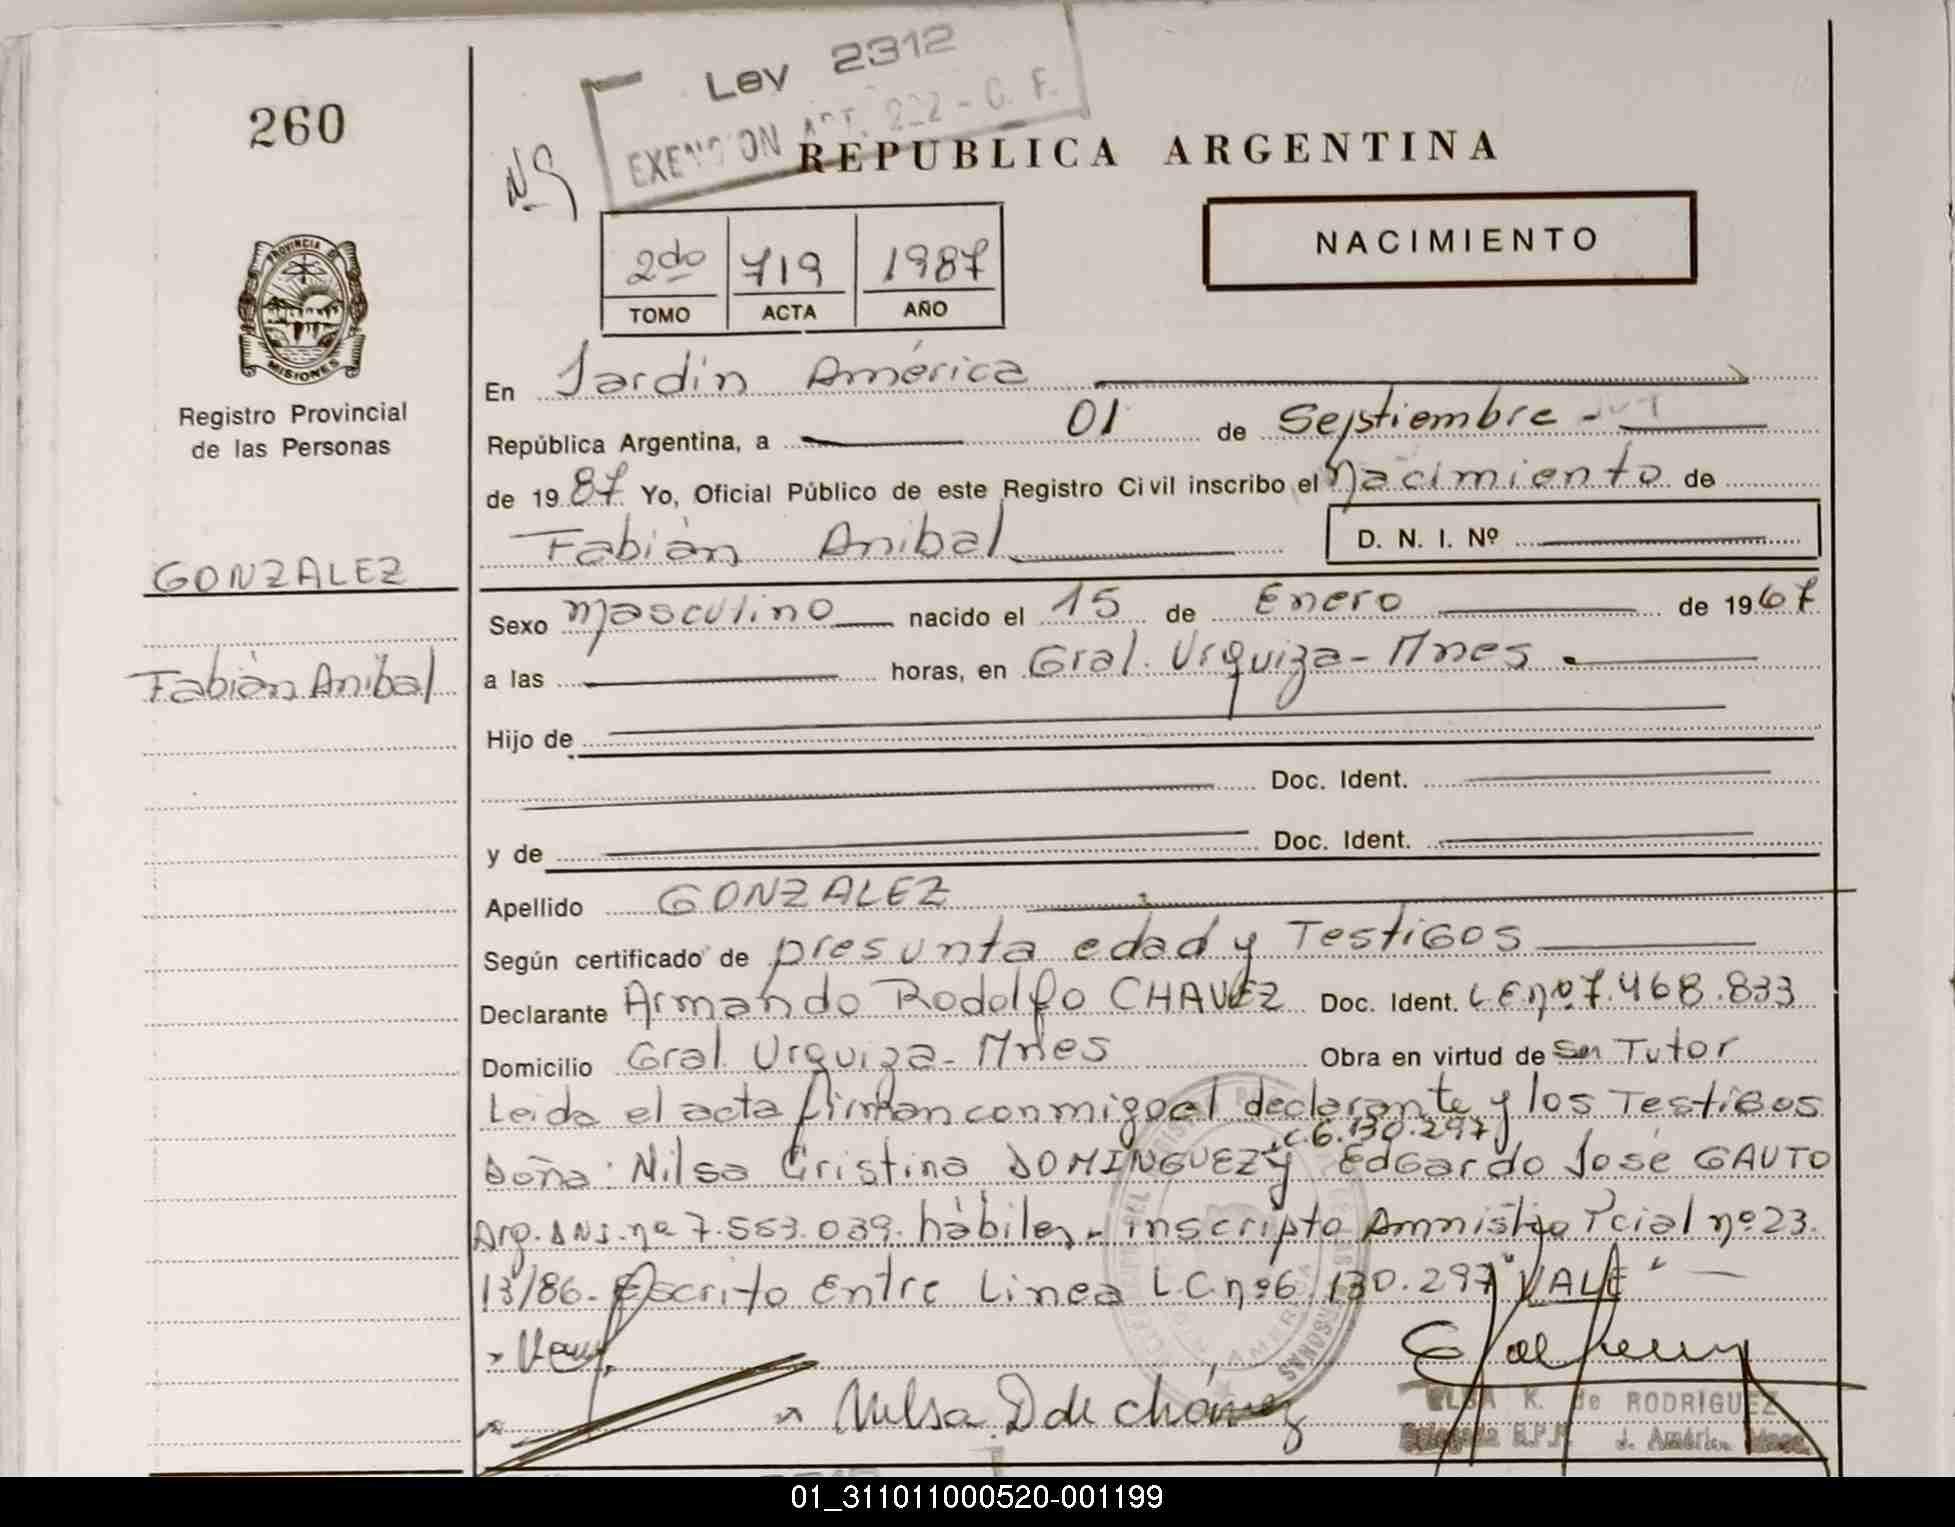 260
Ley 2312
EXENCION ART. 222 - C. F.
Nº
REPUBLICA ARGENTINA
NACIMIENTO
2do 719 1987
TOMO ACTA AÑO
PROVINCIA DE
MISIONES
Registro Provincial
de las Personas
GONZALEZ
Fabián Anibal
En Jardín América
República Argentina, a 01 de Septiembre
de 1987 Yo, Oficial Público de este Registro Civil inscribo el Nacimiento de
Fabián Anibal D. N. I. Nº
Sexo Masculino nacido el 15 de Enero de 1967
a las horas, en Gral. Urquiza - Mnes
Hijo de
Doc. Ident.
y de Doc. Ident.
Apellido GONZALEZ
Según certificado de presunta edad y Testigos
Declarante Armando Rodolfo CHAVEZ Doc. Ident. L.E.nº 7.468.833
Domicilio Gral. Urquiza - Mnes Obra en virtud de ser Tutor
Leida el acta firman conmigo el declarante y los Testigos
L.C. 6.130.297
Doña: Nilsa Cristina DOMINGUEZ y Edgardo José GAUTO
Arg. DNI. nº 7.553.039. hábiles - inscripto Amnistia Pcial nº 23.
13/86 - Escrito Entre Linea L.C. nº 6.130.297 "VALE"
Nilsa D de Chávez
ELSA K. de RODRIGUEZ
Delegada R.P.P. J. América Mnes.
01_311011000520-001199